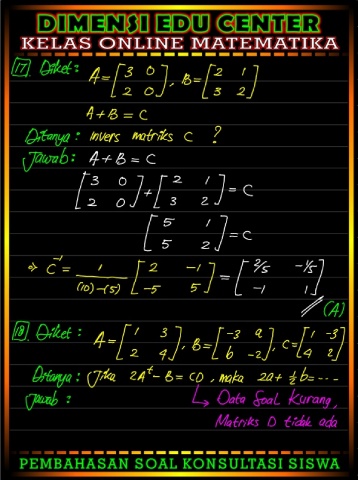 DIMENSI EDU CENTER
KELAS ONLINE MATEMATIKA
17 Diket: A = [3 0; 2 0], B = [2 1; 3 2]
A+B = C
Ditanya : invers matriks C ?
Jawab: A+B = C
[3 0; 2 0] + [2 1; 3 2] = C
[5 1; 5 2] = C
⇒ C⁻¹ = 1/((10)-(5)) [2 -1; -5 5] = [2/5 -1/5; -1 1]
(A)
18 Diket : A = [1 3; 2 4], B = [-3 a; b -2], C = [1 -3; 4 2]
Ditanya : Jika 2Aᵗ - B = CD, maka 2a + ½b = ----
Jawab : ↳ Data Soal Kurang,
Matriks D tidak ada
PEMBAHASAN SOAL KONSULTASI SISWA